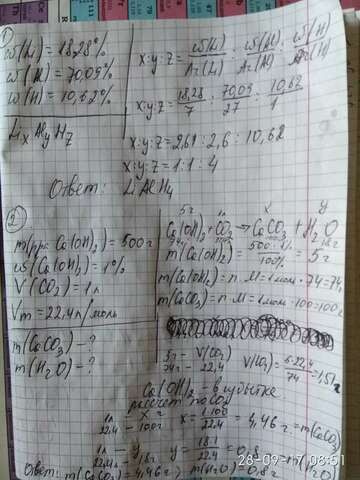 1)
ω(Li) = 18,28%
ω(Al) = 70,09%
ω(H) = 10,62%
LixAlyHz
x:y:z = ω(Li)/Ar(Li) : ω(Al)/Ar(Al) : ω(H)/Ar(H)
x:y:z = 18,28/7 : 70,09/27 : 10,62/1
x:y:z = 2,61 : 2,6 : 10,62
x:y:z = 1:1:4
Ответ: LiAlH4
2)
m(ppa Ca(OH)2) = 500г
ω(Ca(OH)2) = 1%
V(CO2) = 1л
Vm = 22,4л/моль
m(CaCO3) - ?
m(H2O) - ?
5г x y
Ca(OH)2 + CO2 → CaCO3 + H2O
m(Ca(OH)2) = 500·1%/100% = 5г
m(Ca(OH)2) = n·M = 1моль·74 = 74г
m(CaCO3) = n·M = 1моль·100 = 100г
5г/74г - V(CO2)/22,4 V(CO2) = 5·22,4/74 = 1,51л
Ca(OH)2 - в избытке
1л/22,4 - x/100г x = 1·100/22,4 = 4,46г = m(CaCO3)
1л/22,4л - y/18г y = 18·1/22,4 = 0,8г = m(H2O)
Ответ: m(CaCO3) = 4,46г; m(H2O) = 0,8г
28-09-17 08:51